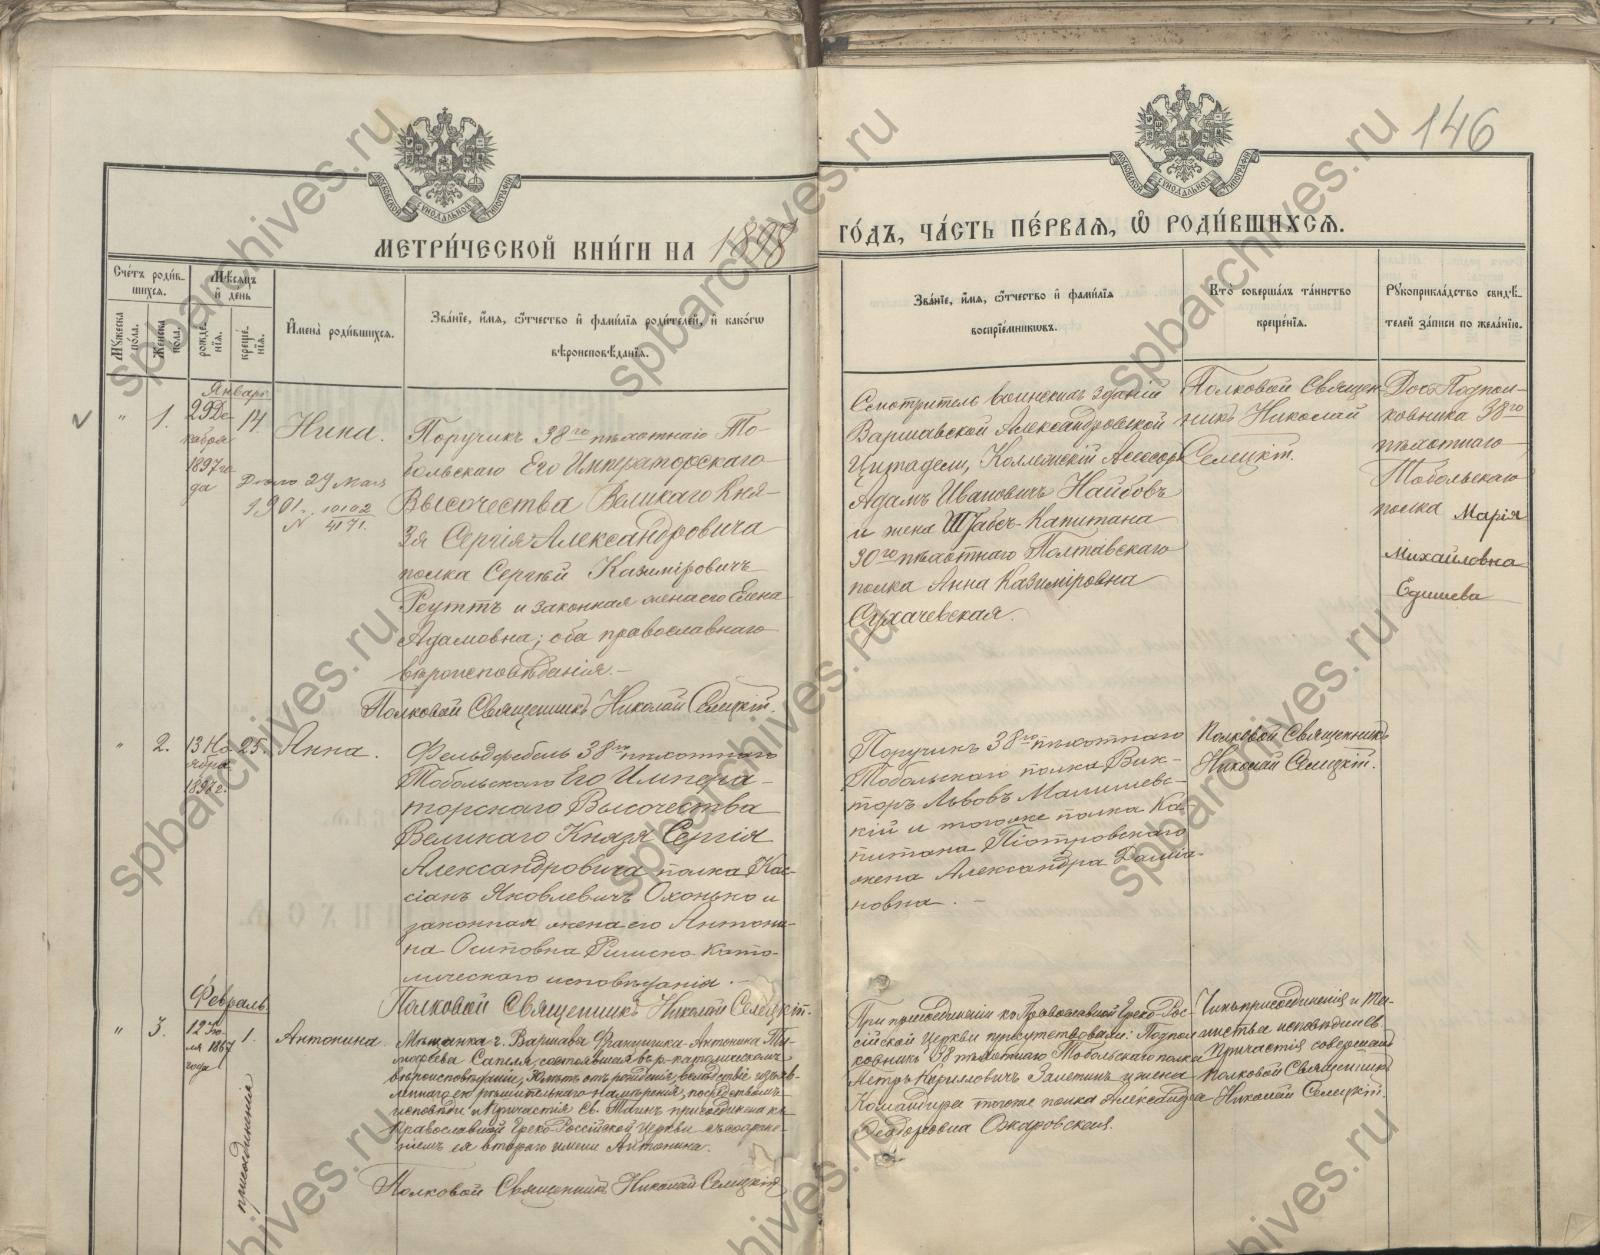 146
МОСКОВСКОЙ СѴНОДАЛЬНОЙ ТИПОГРАФІИ
МОСКОВСКОЙ СѴНОДАЛЬНОЙ ТИПОГРАФІИ
МЕТРИ́ЧЕСКОЙ КНИ́ГИ НА 1898
ГО́ДЪ, ЧА́СТЬ ПЕ́РВАѦ, Ѡ҆ РОДИ́ВШИХСѦ.
Сче́тъ роди́в-
шихсѧ.
Мѣ́сѧцъ
и҆ де́нь
Мꙋ́жеска по́ла.
Же́нска по́ла.
рожде́нїѧ.
креще́нїѧ.
И҆мена̀ роди́вшихсѧ.
Зва́нїе, и҆́мѧ, ѻ҆́тчество и҆ фами́лїѧ роди́телей, и҆ како́гѡ
вѣроисповѣ́данїѧ.
Зва́нїе, и҆́мѧ, ѻ҆́тчество и҆ фами́лїѧ
воспрїе́мникѡвъ.
Кто̀ соверша́лъ та́инство
креще́нїѧ.
Рꙋкоприкла́дство свидѣ́-
телей за́писи по жела́нїю.
Январь
" 1.
29 Де-
кабря
1897 го-
да
14.
Дано 29 Мая
1901. N 10102
4171.
Нина.
Поручикъ 38го пѣхотнаго То-
больскаго Его Императорскаго
Высочества Великаго Кня-
зя Сергія Александровича
полка Сергѣй Казиміровичъ
Реуттъ и законная жена его Елена
Адамовна; оба православнаго
вѣроисповѣданія. –
Полковой Священникъ Николай Селецкій.
Смотритель воинскихъ зданій
Варшавской Александровской
Цитадели, Коллежскій Асессоръ
Адамъ Ивановичъ Наибовъ
и жена Штабсъ-Капитана
30го пѣхотнаго Полтавскаго
полка Анна Казиміровна
Сухачевская.
Полковой Священ-
никъ Николай
Селецкій.
Подпол-
ковника 38го
пѣхотнаго
Тобольскаго
полка Марія
Михайловна
" 2.
13 Но-
ября
1897 г.
25.
Анна.
Фельдфебель 38го пѣхотнаго
Тобольскаго Его Импера-
торскаго Высочества
Великаго Князя Сергія
Александровича полка Кас-
сіанъ Яковлевичъ Охонько и
законная жена его Антони-
на Осиповна Римско-като-
лическаго исповѣданія. –
Полковой Священникъ Николай Селецкій.
Поручикъ 38го пѣхотнаго
Тобольскаго полка Вик-
торъ Львовъ Малишевс-
кій и тогоже полка Ка-
питана Піотровскаго
жена Александра Даміа-
новна. –
Полковой Священникъ
Николай Селецкій.
Февраль
" 3.
12 Iю-
ля 1867
года
1.
присоединенія
Антонина.
Мѣщанка г. Варшавы Францишка-Антонина
Сапеля, состоявшая въ р-католическомъ
вѣроисповѣданіи, отъ рожденія, вслѣдствіе изъяв-
леннаго ею рѣшительнаго намѣренія, посредствомъ
исповѣди и Причастія Св. Таинъ присоединена къ
Православной Греко-Россійской Церкви
ея втораго имени Антонина.
Полковой Священникъ Николай Селецкій
При присоединеніи ко Православной Греко-Рос-
сійской Церкви присутствовали: Подпол-
ковникъ 38 пѣхотнаго Тобольскаго полка
Петръ Кирилловичъ Залетинъ и жена
Командира тогоже полка Александра
Ѳеодоровна Ожаровская.
Чинъ присоединенія и Та-
инства исповѣди и Св.
Причастія совершалъ
Полковой Священникъ
Николай Селецкій.
spbarchives.ru
spbarchives.ru
spbarchives.ru
spbarchives.ru
spbarchives.ru
spbarchives.ru